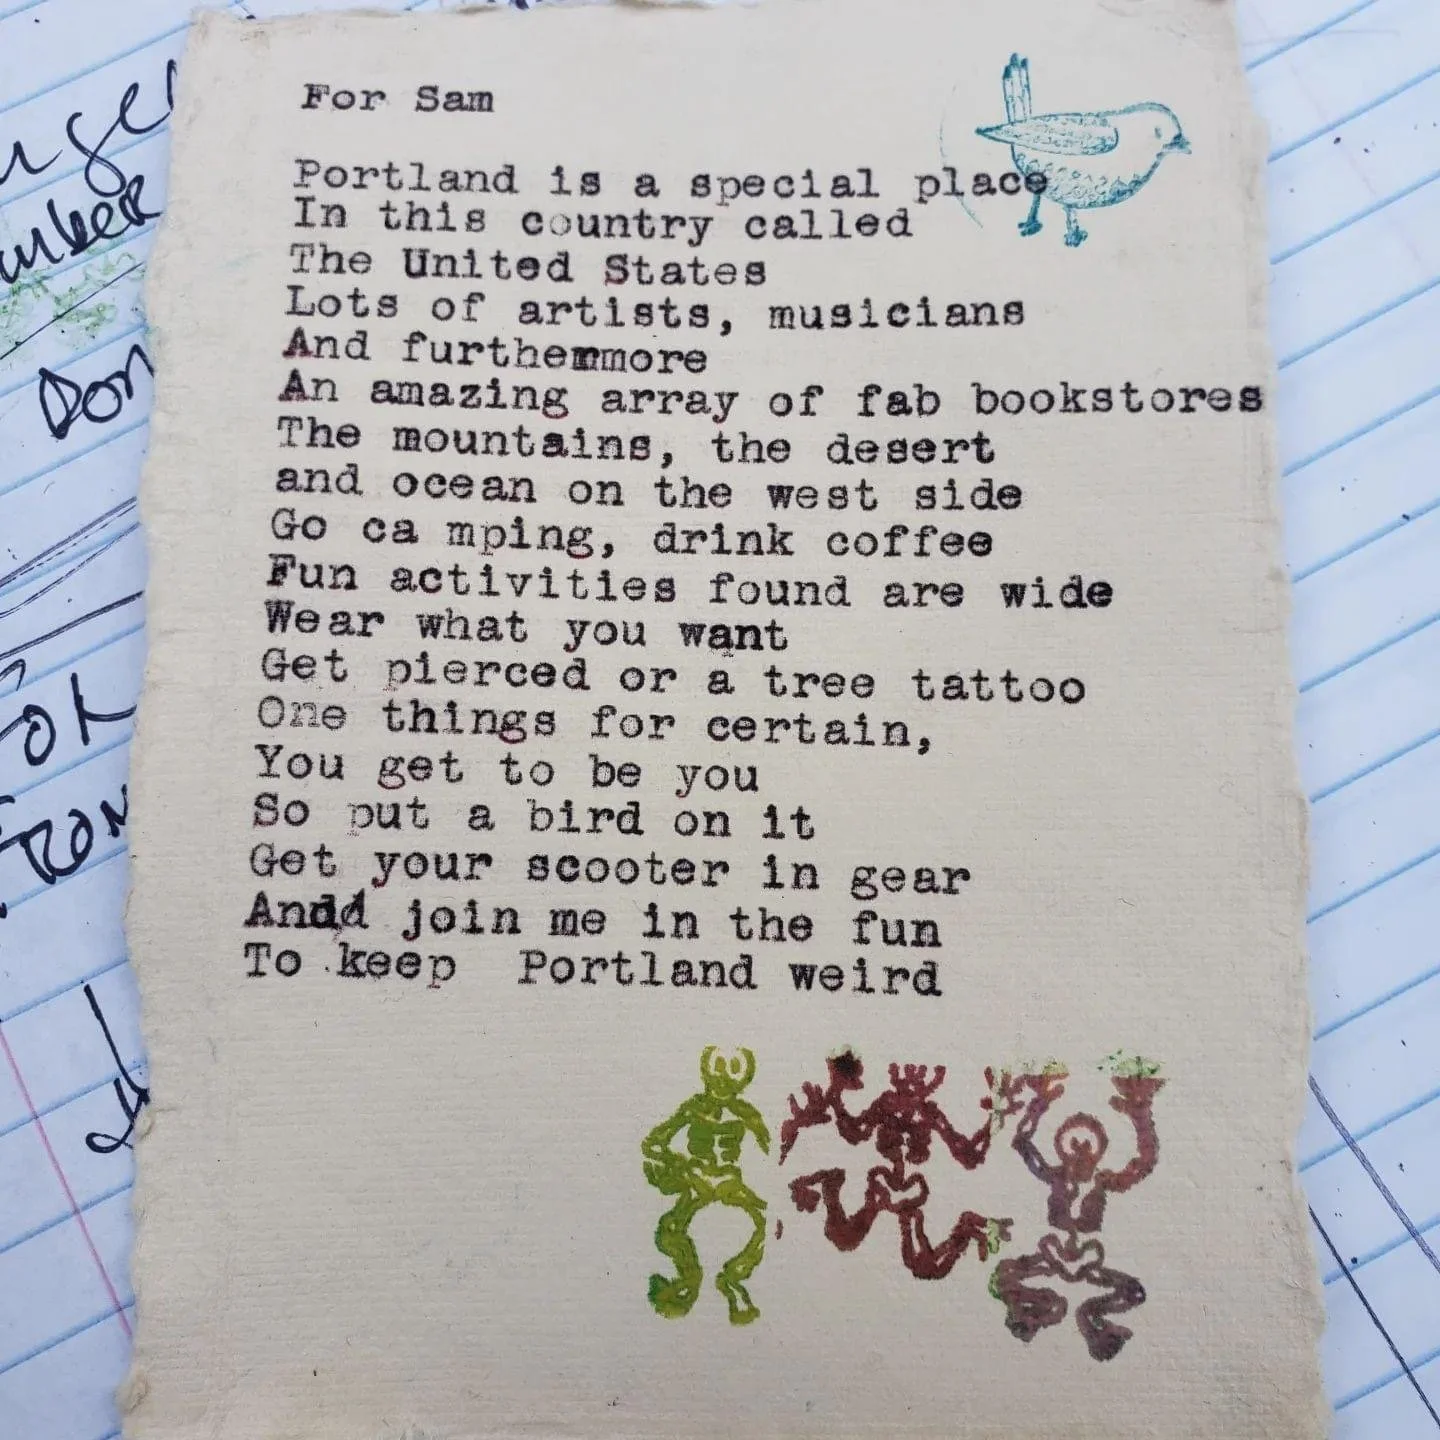 For Sam
Portland is a special place
In this country called
The United States
Lots of artists, musicians
And furthemmore
An amazing array of fab bookstores
The mountains, the desert
and ocean on the west side
Go ca mping, drink coffee
Fun activities found are wide
Wear what you want
Get pierced or a tree tattoo
One things for certain,
You get to be you
So put a bird on it
Get your scooter in gear
Andd join me in the fun
To keep Portland weird